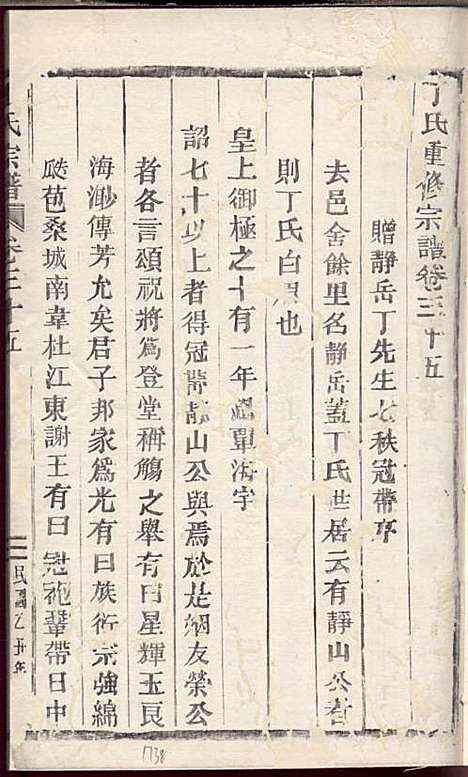 丁氏重修宗譜卷三十五
贈靜岳丁先生七秩冠帶序
去邑舍餘里名靜岳蓋丁氏世居云有靜山公者
則丁氏白眉也
皇上御極之十有一年恩單海宇
詔七十以上者得冠帶靜山公與焉於是姻友榮公
者各言頌祝將為登堂稱觴之舉有曰星輝玉艮
海渺傳芳允矣君子邦家為光有曰族衍宗強綿
瓞苞桑城南韋杜江東謝王有曰冠袍鞶帶日中
氏宗譜
卷三十五
民國乙丑年
1738